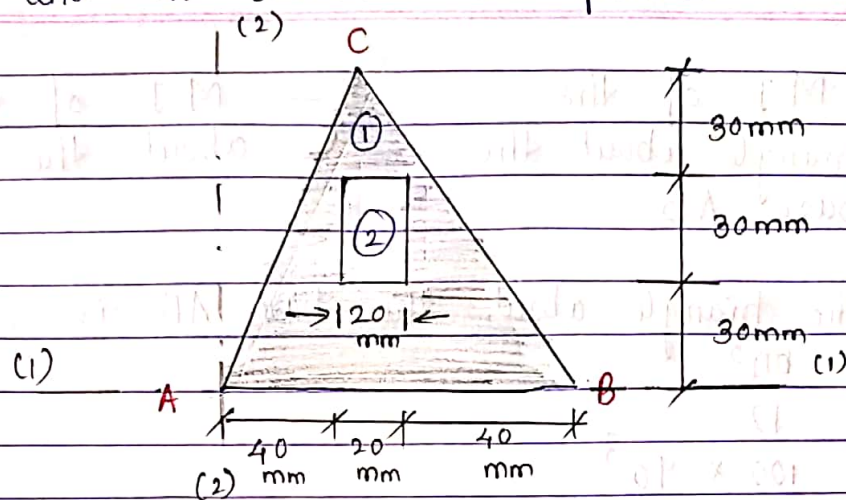 (2)
C
①
30mm
②
30mm
20
mm
30mm
(1)
(1)
A
B
40
mm
20
mm
40
mm
(2)